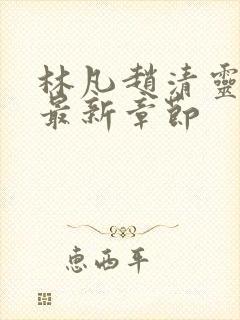 林凡趙清靈
最新章節
惠西平